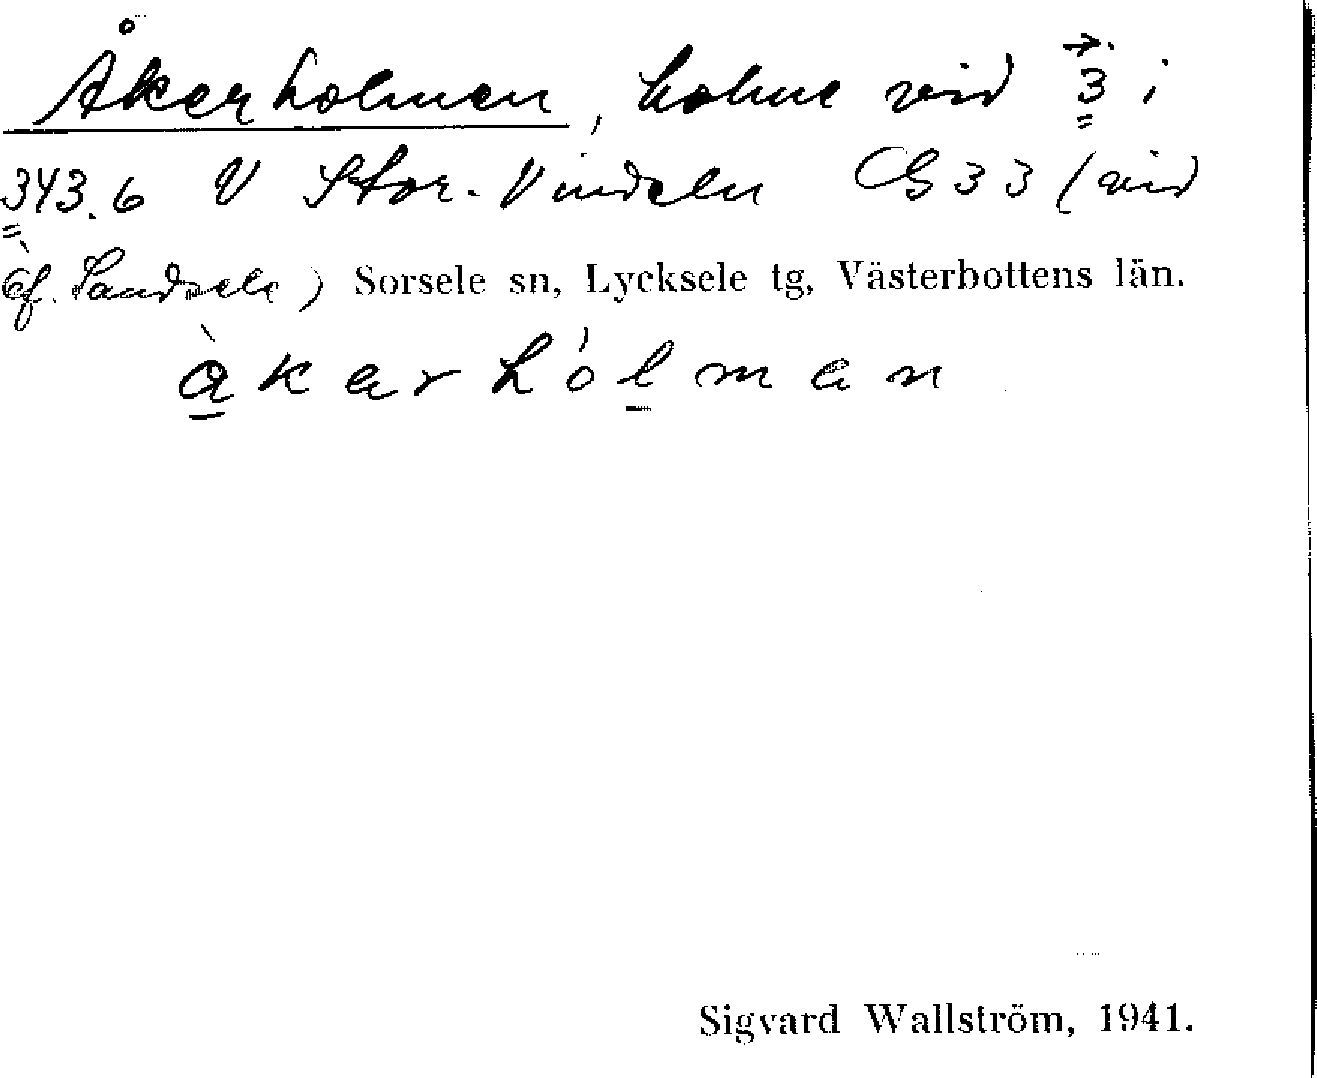 Åkerholmen, holme vid 3 i
343.6 V Stor-Vindeln CG33 (vid
Sandsele) Sorsele sn, Lycksele tg, Västerbottens län.
àkarhólman
Sigvard Wallström, 1941.